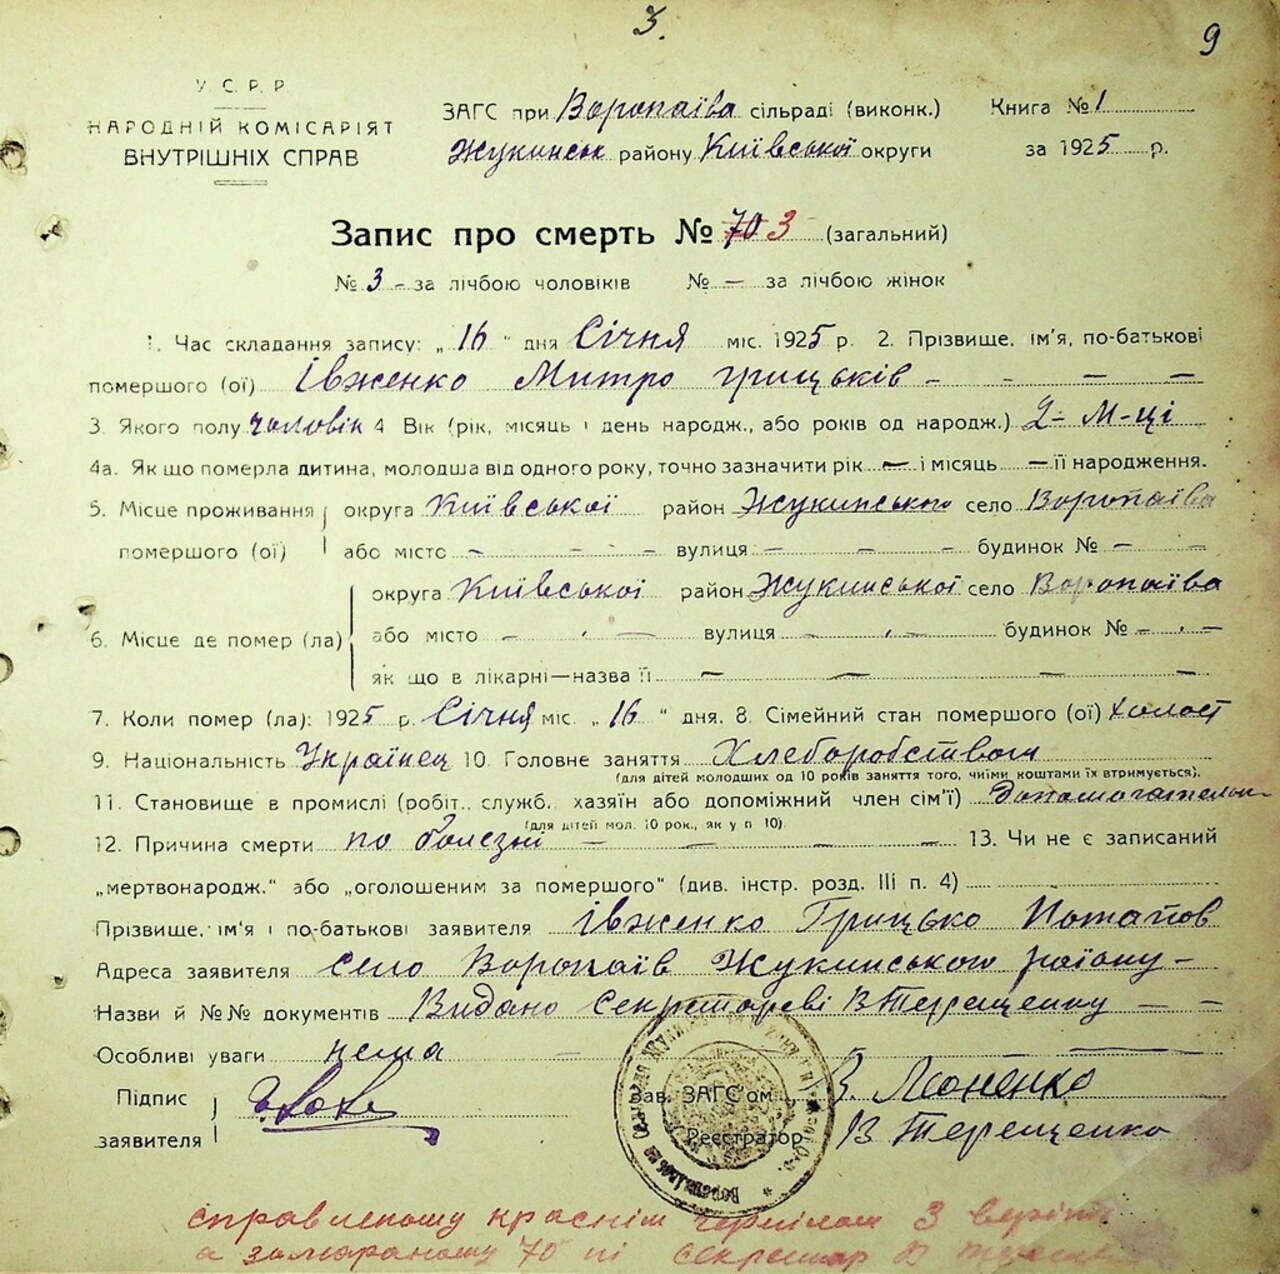 3.
9
У.С.Р.Р
НАРОДНІЙ КОМІСАРІЯТ
ВНУТРІШНІХ СПРАВ
ЗАГС при Воропаїва сільраді (виконк.) Книга № 1
Жукинськ району Київської округи за 1925 р.
Запис про смерть № 70 3 (загальний)
№ 3 - за лічбою чоловіків № — за лічбою жінок
1. Час складання запису: „16" дня Січня міс. 1925 р. 2. Прізвище, ім'я, по-батькові
помершого (ої) Івженко Митро грицьків - - — —
3. Якого полу чоловік 4 Вік (рік, місяць і день народж., або років од народж.) 2- м-ці
4а. Як що померла дитина, молодша від одного року, точно зазначити рік — і місяць — її народження.
5. Місце проживання округа Київської район Жукинського село Воропаїва
помершого (ої) або місто - - - вулиця - - - будинок № - -
округа Київської район Жукинської село Воропаїва
6. Місце де помер (ла) або місто - - — вулиця - - — будинок № - - -
як що в лікарні—назва її — — — —
7. Коли помер (ла): 1925 р. Січня міс. „16" дня. 8. Сімейний стан помершого (ої) холост
9. Національність Українец 10. Головне заняття Хлеборобством
(для дітей молодших од 10 років заняття того, чиїми коштами їх втримується).
11. Становище в промислі (робіт., служб, хазяїн або допоміжний член сім'ї)
(для дітей мол. 10 рок., як у п 10).
12. Причина смерти по болезні — — — — 13. Чи не є записаний
„мертвонародж." або „оголошеним за помершого" (див. інстр. розд. III п. 4)
Прізвище, ім'я і по-батькові заявителя Івженко Грицько Потапов
Адреса заявителя село Воропаїв Жукинського району -
Назви й №№ документів Видано Секретареві В Терещенку — —
Особливі уваги нема
Підпис Зав. ЗАГС'ом В.
заявителя Реєстратор В Терещенко
справленому красним чернілом 3
а 70 секретар В